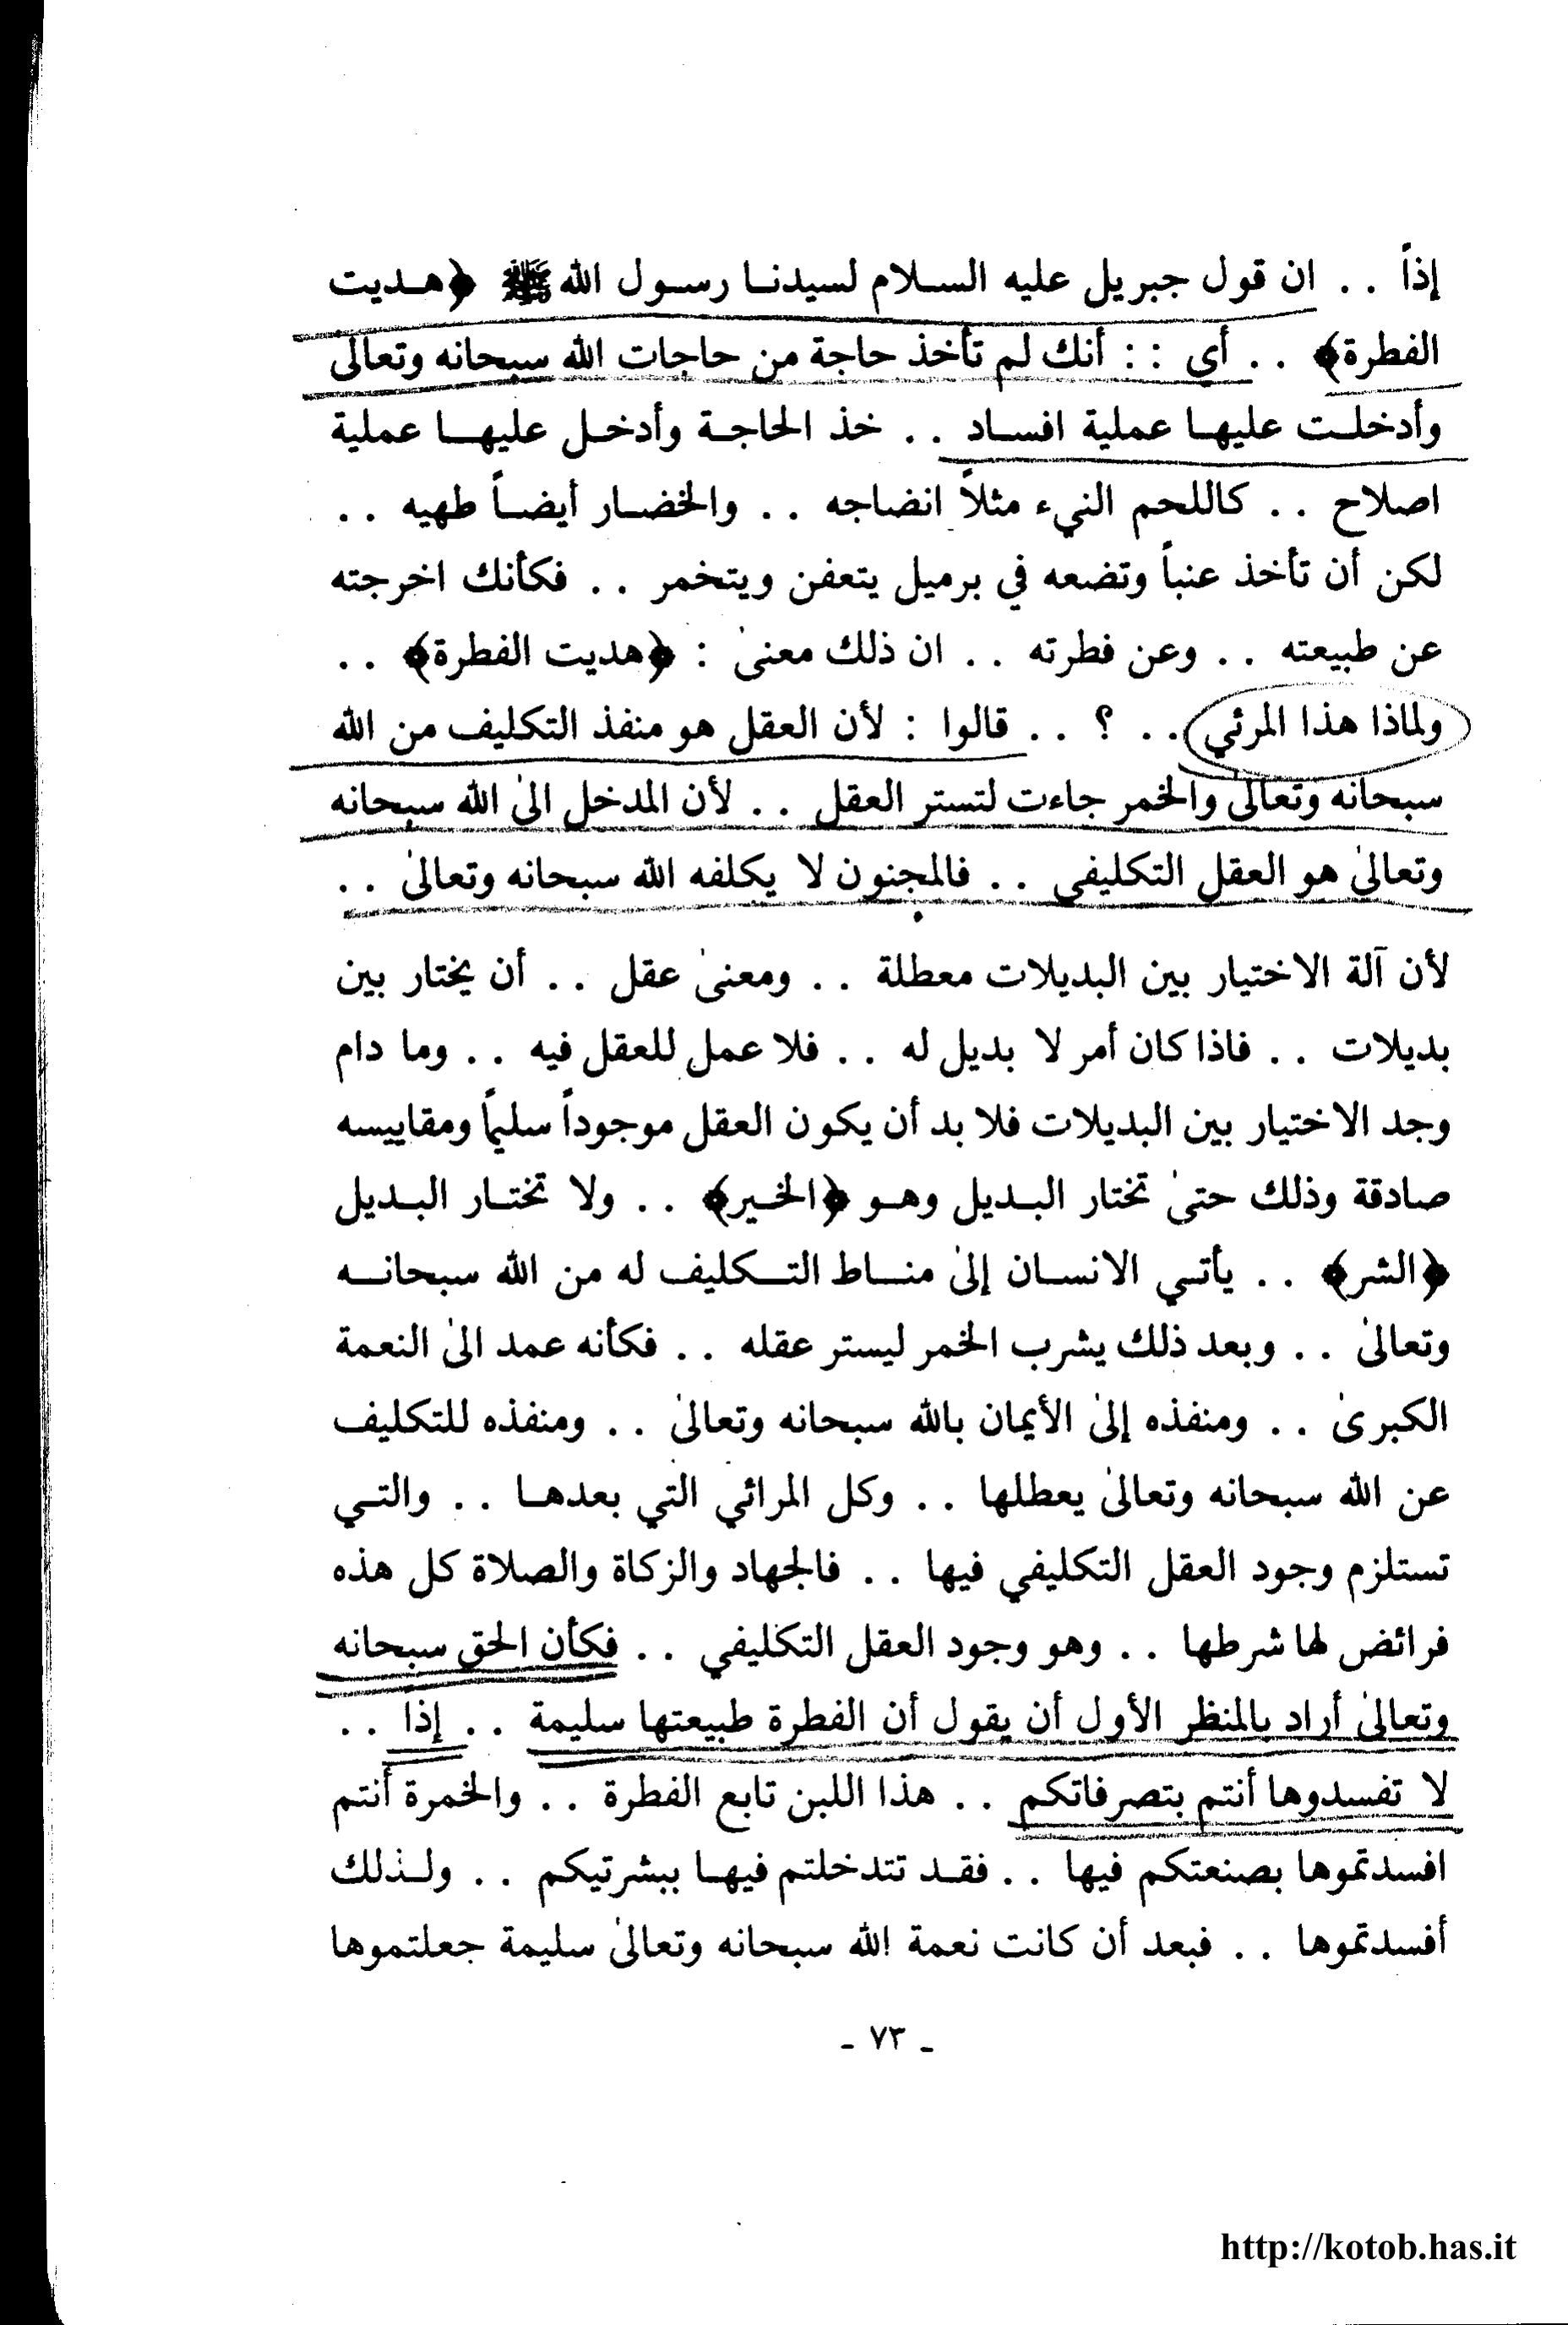 إذاً . . ان قول جبريل عليه السلام لسيدنا رسول الله ﷺ ﴿هديت
الفطرة﴾ . . أي : : أنك لم تأخذ حاجة من حاجات الله سبحانه وتعالى
وأدخلت عليها عملية افساد . . خذ الحاجة وأدخل عليها عملية
اصلاح . . كاللحم النيء مثلاً انضاجه . . والخضار أيضاً طهيه . .
لكن أن تأخذ عنباً وتضعه في برميل يتعفن ويتخمر . . فكأنك اخرجته
عن طبيعته . . وعن فطرته . . ان ذلك معنىٰ : ﴿هديت الفطرة﴾ . .
ولماذا هذا المرئي . . ؟ . . قالوا : لأن العقل هو منفذ التكليف من الله
سبحانه وتعالىٰ والخمر جاءت لتستر العقل . . لأن المدخل الىٰ الله سبحانه
وتعالىٰ هو العقل التكليفي . . فالمجنون لا يكلفه الله سبحانه وتعالىٰ . .
لأن آلة الاختيار بين البديلات معطلة . . ومعنىٰ عقل . . أن يختار بين
بديلات . . فاذا كان أمر لا بديل له . . فلا عمل للعقل فيه . . وما دام
وجد الاختيار بين البديلات فلا بد أن يكون العقل موجوداً سليماً ومقاييسه
صادقة وذلك حتىٰ تختار البديل وهو ﴿الخير﴾ . . ولا تختار البديل
﴿الشر﴾ . . يأتي الانسان إلىٰ مناط التكليف له من الله سبحانه
وتعالىٰ . . وبعد ذلك يشرب الخمر ليستر عقله . . فكأنه عمد الىٰ النعمة
الكبرىٰ . . ومنفذه إلىٰ الأيمان بالله سبحانه وتعالىٰ . . ومنفذه للتكليف
عن الله سبحانه وتعالىٰ يعطلها . . وكل المرائي التي بعدها . . والتي
تستلزم وجود العقل التكليفي فيها . . فالجهاد والزكاة والصلاة كل هذه
فرائض لها شرطها . . وهو وجود العقل التكليفي . . فكأن الحق سبحانه
وتعالىٰ أراد بالمنظر الأول أن يقول أن الفطرة طبيعتها سليمة . . إذاً . .
لا تفسدوها أنتم بتصرفاتكم . . هذا اللبن تابع الفطرة . . والخمرة أنتم
افسدتموها بصنعتكم فيها . . فقد تتدخلتم فيها ببشرتيكم . . ولذلك
أفسدتموها . . فبعد أن كانت نعمة الله سبحانه وتعالىٰ سليمة جعلتموها
- ٧٣ -
http://kotob.has.it